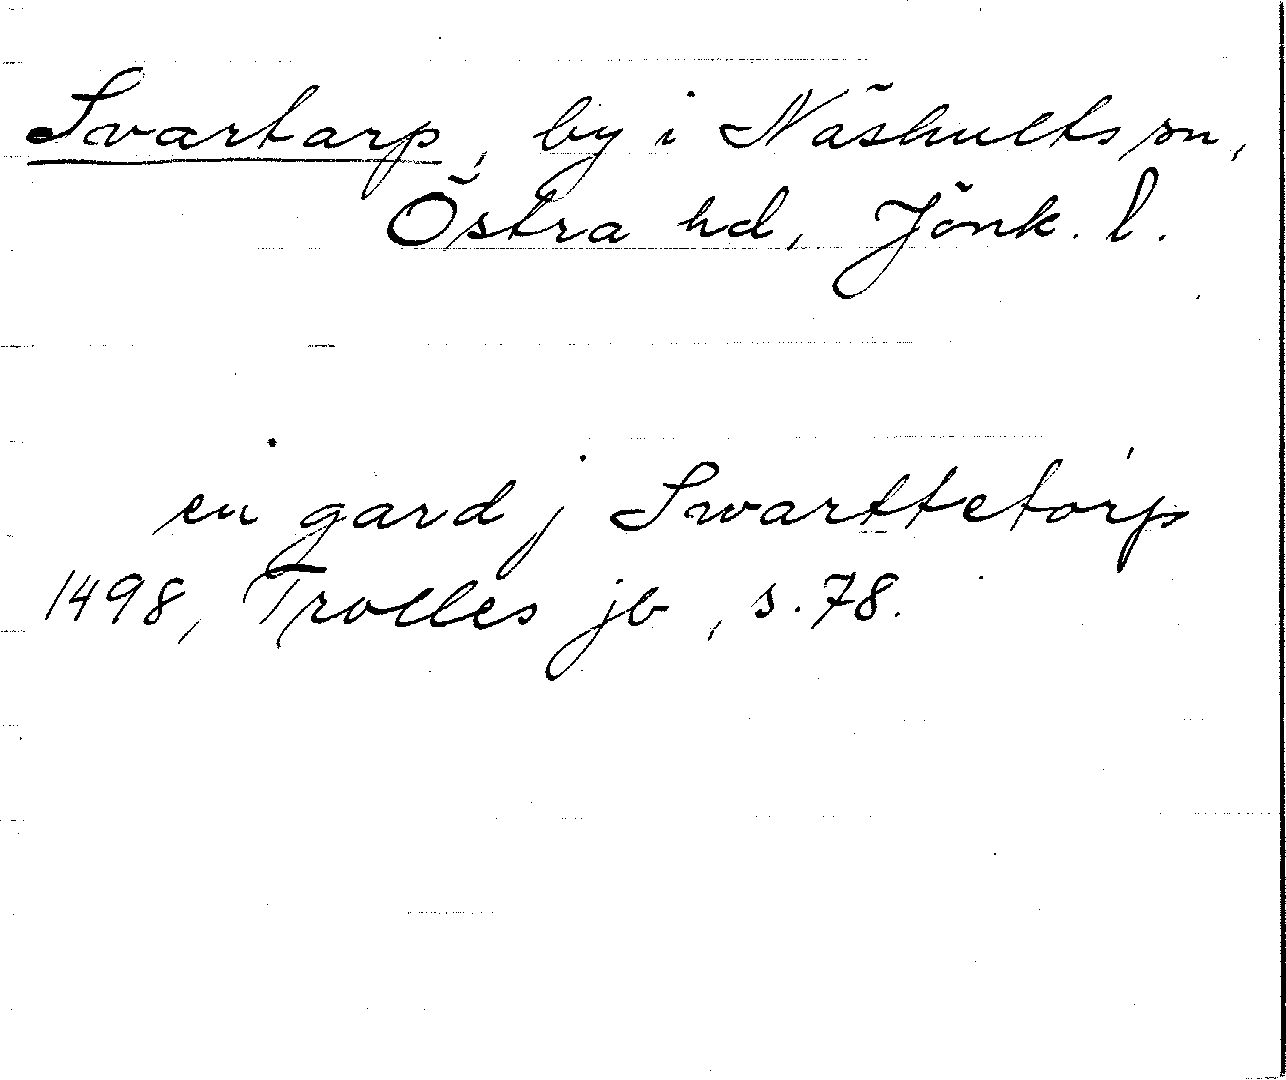 Svartarp, by i Näshults sn,
Östra hd, Jönk. l.
en gard j Swarttetorp
1498, Trolles jb, s. 78.